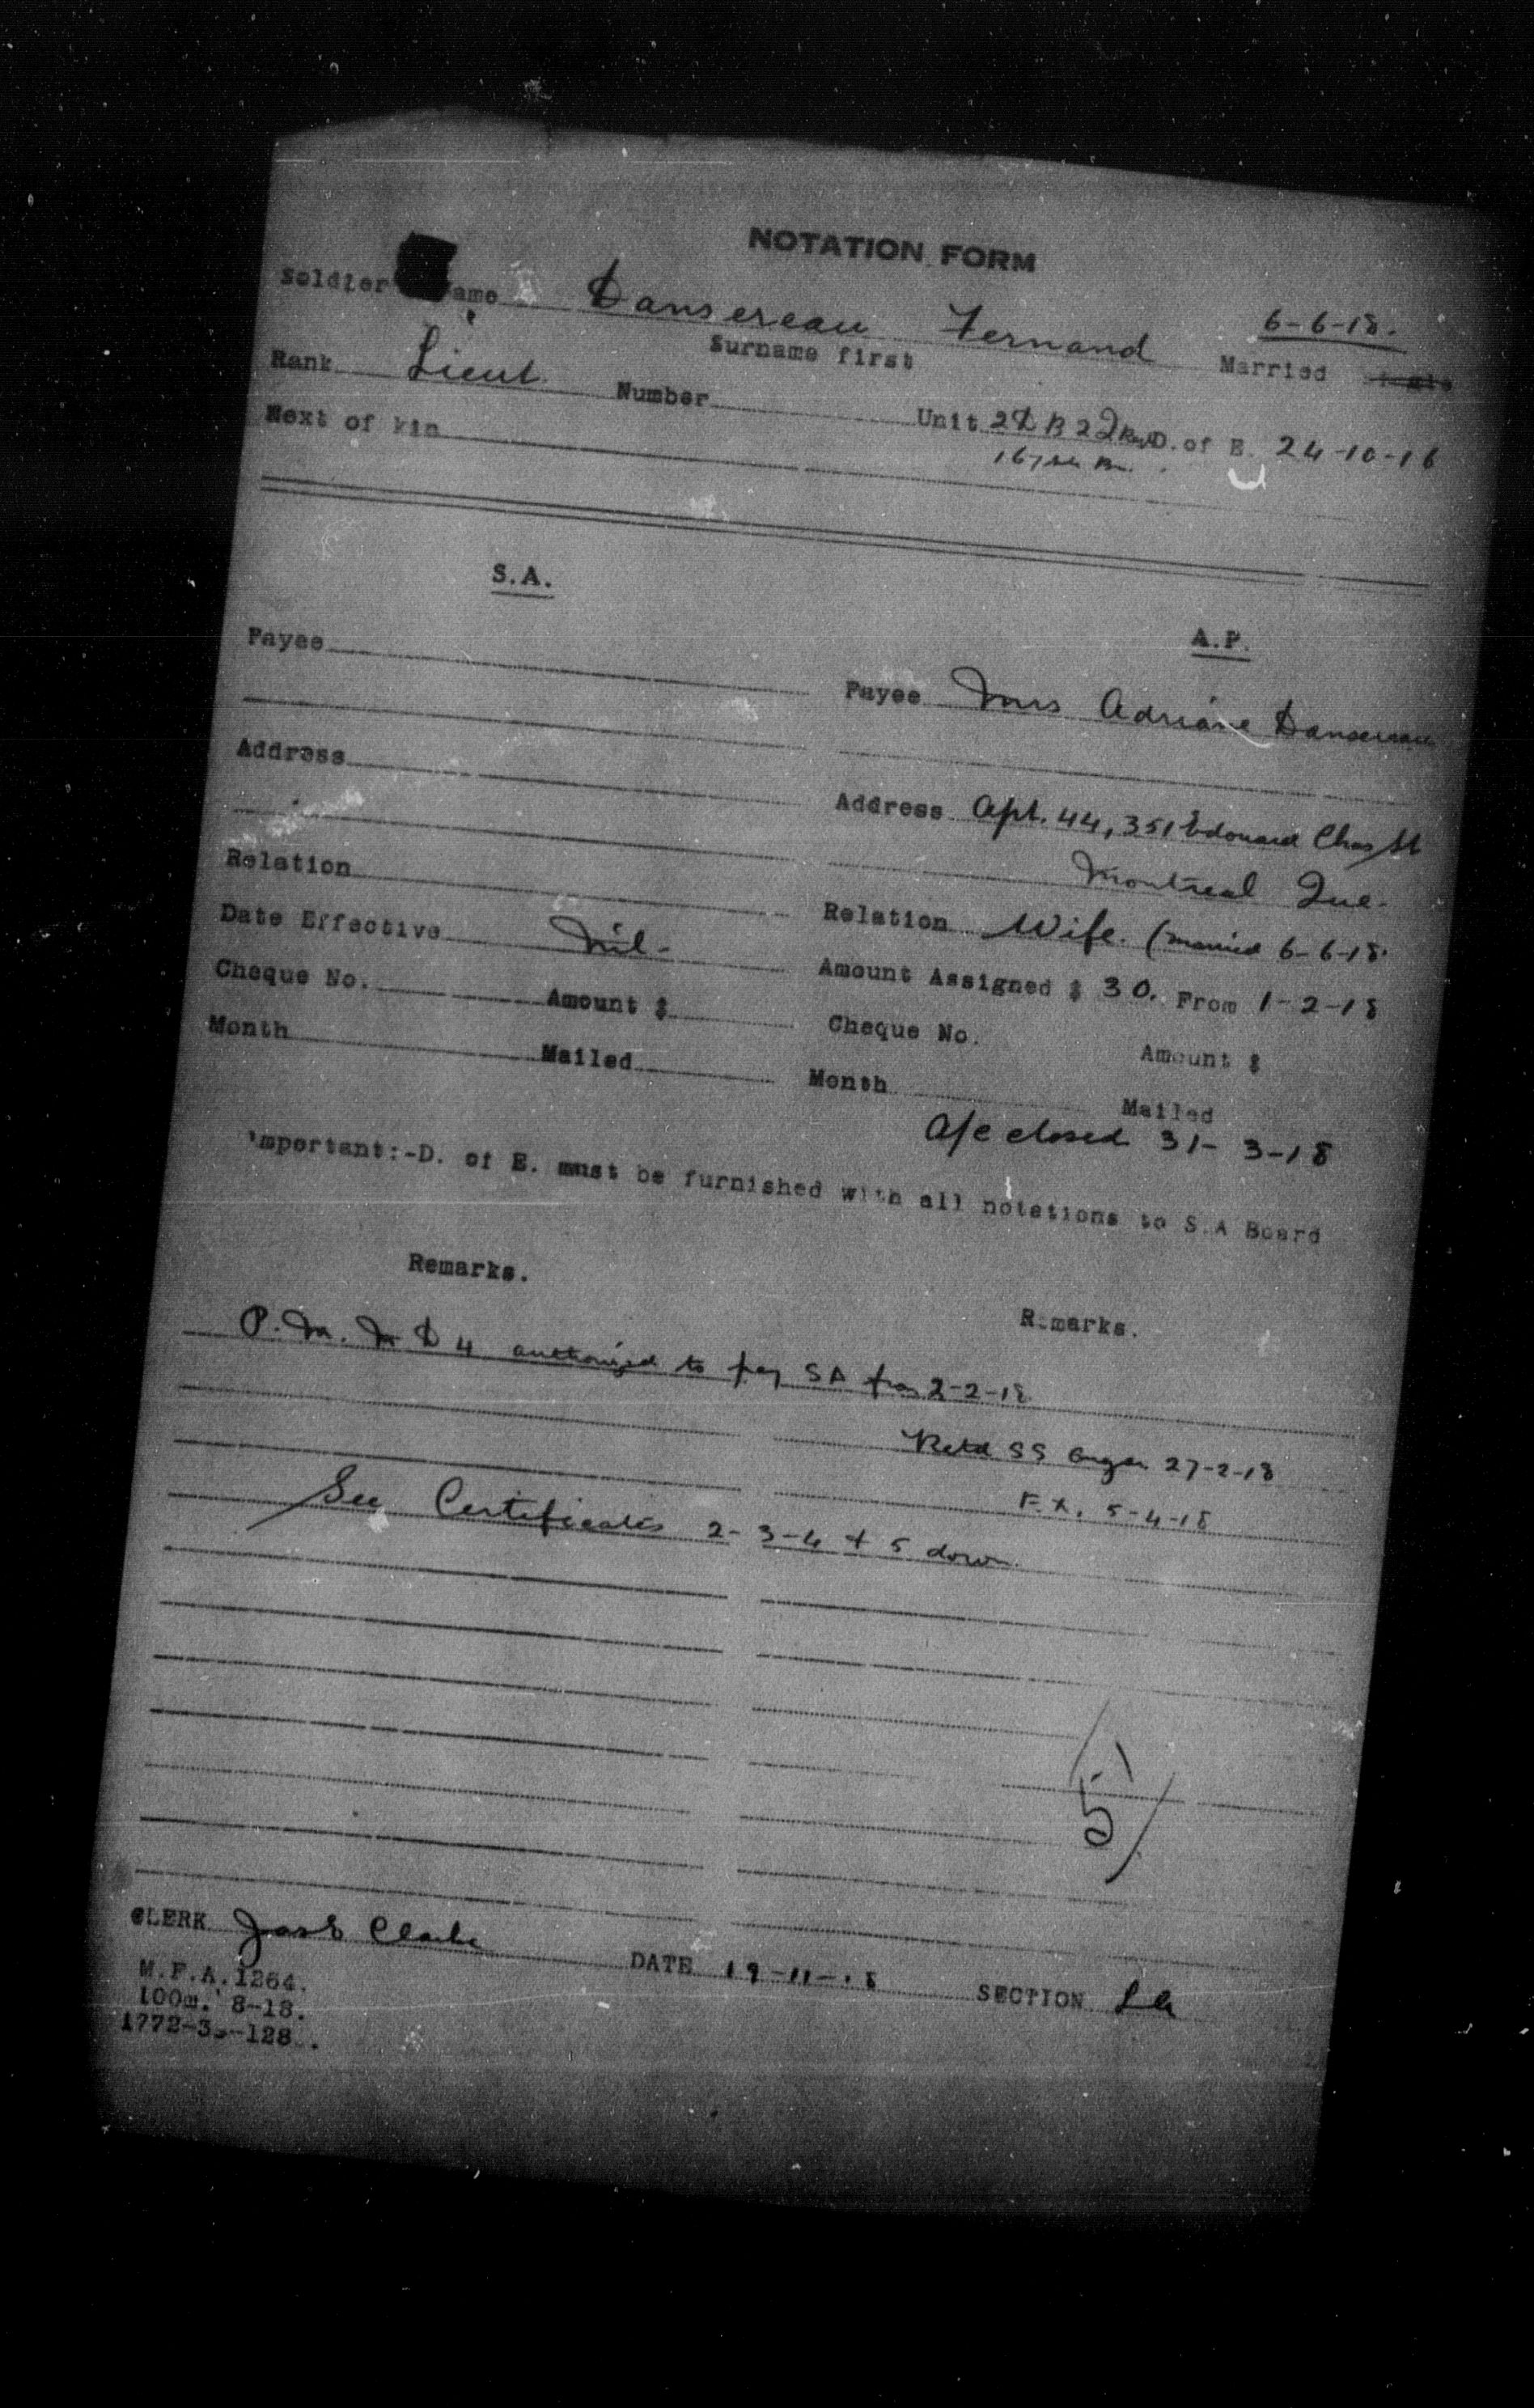 NOTATION FORM
6-6-18.
Soldier ame Dansereau Fernand Married
Surname first
Rank Lieut. Number Unit D. of E. 24-10-16
Next of kin
S.A.
A.P.
Payee
Payee Mrs Adriane Dansereau
Address
Address Apt. 44, 351 Edouard Chas St
Montreal Que.
Relation
Relation Wife. (married 6-6-18.
Date Effective Nil-
Amount Assigned $ 30. From 1-2-18
Cheque No. Amount $
Cheque No. Amount $
Month Mailed
Month Mailed
A/c closed 31-3-18
Important:-D. of E. must be furnished with all notations to S.A Board
Remarks.
Remarks.
P.M. M D 4 authorized to pay SA from 2-2-18
Retd SS 27-2-18
F.X. 5-4-18
See Certificates 2-3-4 + 5 down.
(5-)
CLERK Clarke DATE 19-11-18 SECTION
M.F.A.1264.
100m. 8-18.